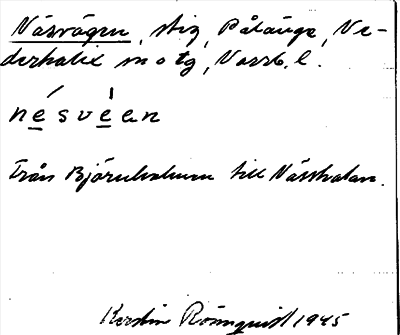 Näsvägen, stig, Pålänge, Ne-
derkalix sn o tg, Norrb. l.
nésvéen
Från Björnholmen till Nässhalan.
Kerstin Rönnquist 1945